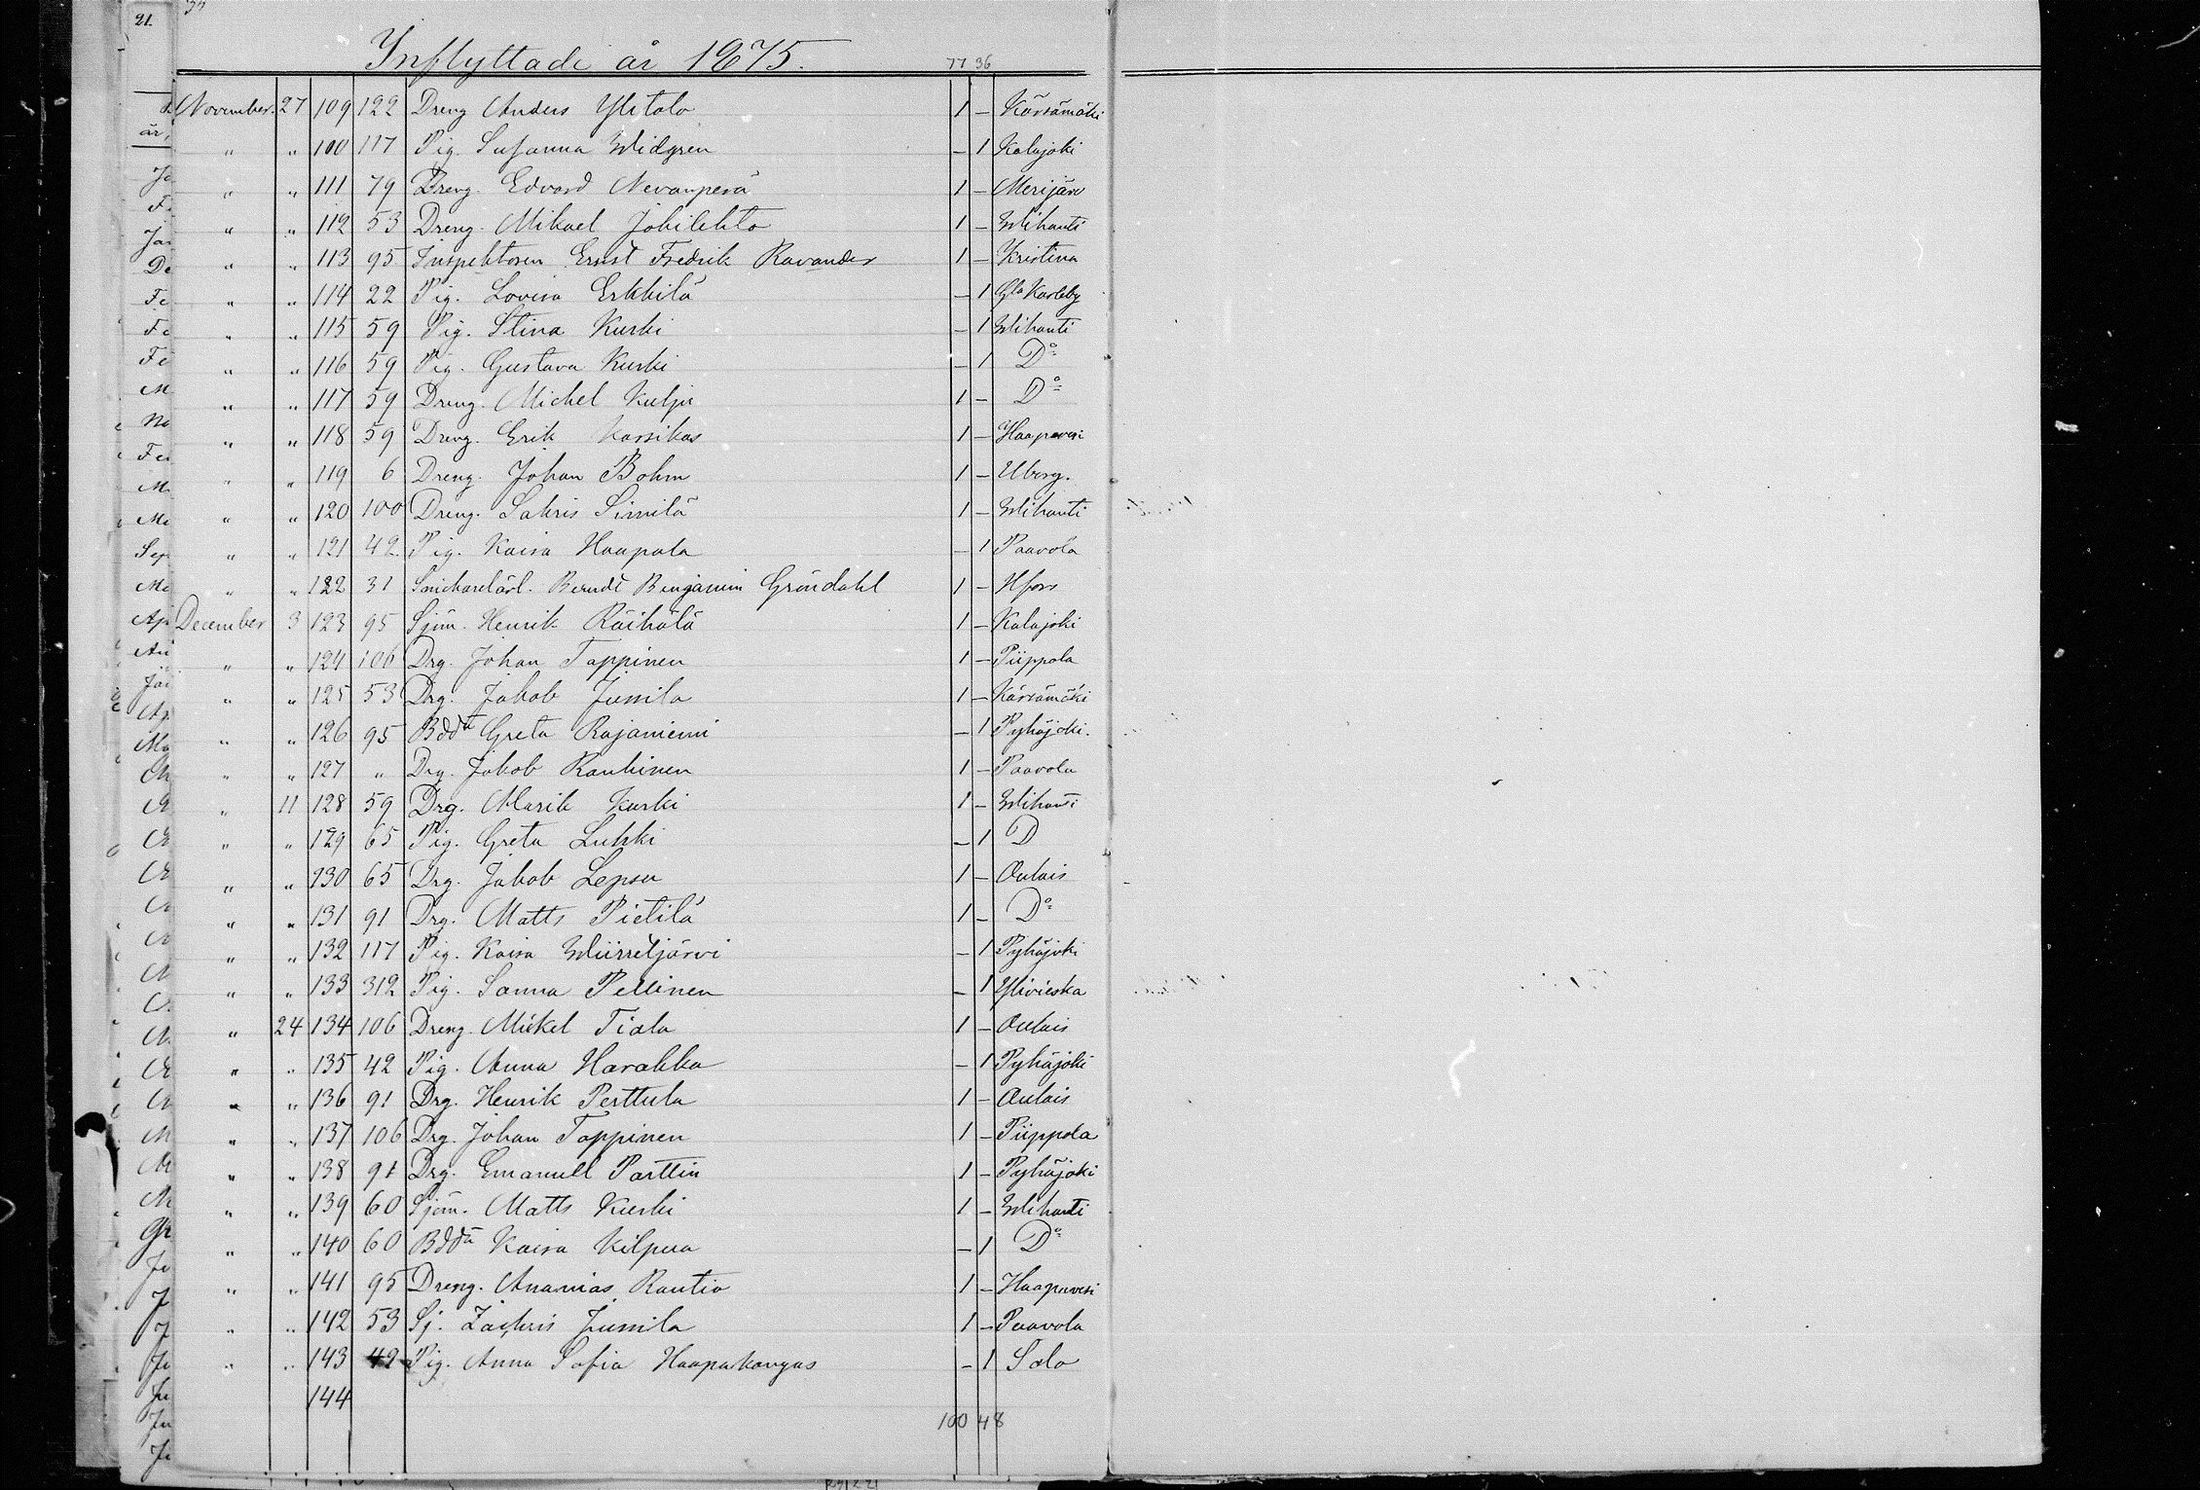 21.
Inflyttade år 1875.
77 36
November. 27 109 122 Dreng Anders Ylitalo 1 – Kärsämäki
" " 100 117 Pig. Susanna Widgren – 1 Kalajoki
" " 111 79 Dreng. Edvard Nevanperä 1 – Merijärv
" " 112 53 Dreng. Mikael Jokilehto 1 – Wihanti
" " 113 95 Inspektoren Ernst Fredrik Ravander 1 – Kristina
" " 114 22 Pig. Lovisa Erkkilä – 1 Gla Karleby
" " 115 59 Pig. Stina Kurki – 1 Wihanti
" " 116 59 Pig. Gustava Kurki – 1 Do
" " 117 59 Dreng. Michel Kulju 1 – Do
" " 118 59 Dreng. Erik Karsikas 1 – Haapavesi
" " 119 6 Dreng. Johan Bohm 1 – Uborg.
" " 120 100 Dreng. Sakris Similä 1 – Wihanti
" " 121 42 Pig. Kaisa Haapala – 1 Paavola
" " 122 31 Snickarelärl. Berndt Benjamin Gröndahl 1 – Hfors
December 3 123 95 Sjöm. Henrik Räihälä 1 – Kalajoki
" " 124 106 Drg. Johan Tappinen 1 – Piippola
" " 125 53 Drg. Jakob Junnila 1 – Kärsämäki
" " 126 95 Bdda Greta Rajaniemi – 1 Pyhäjoki.
" " 127 " Drg. Jakob Rauhinen 1 – Paavola
" 11 128 59 Drg. Marik Kurki 1 – Wihanti
" " 129 65 Pig. Greta Luhki – 1 D
" " 130 65 Drg. Jakob Lepsu 1 – Oulais
" " 131 91 Drg. Matts Pietilä 1 – Do
" " 132 117 Pig. Kaisa Wiirretjärvi – 1 Pyhäjoki
" " 133 312 Pig. Sanna Pellinen – 1 Ylivieska
" 24 134 106 Dreng. Mickel Tiala 1 – Oulais
" " 135 42 Pig. Anna Harakka – 1 Pyhäjoki
" " 136 91 Drg. Henrik Perttula 1 – Oulais
" " 137 106 Drg. Johan Tappinen 1 – Piippola
" " 138 91 Drg. Emanuel Parttin 1 – Pyhäjoki
" " 139 60 Sjöm. Matts Kurki 1 – Wihanti
" " 140 60 Bdda Kaisa Kilpua – 1 Do
" " 141 95 Dreng. Ananias Rautio 1 – Haapavesi
" " 142 53 Sj. Zachris Junnila 1 – Paavola
" " 143 42 Pig. Anna Sofia Haapakangas – 1 Salo
144
100 48